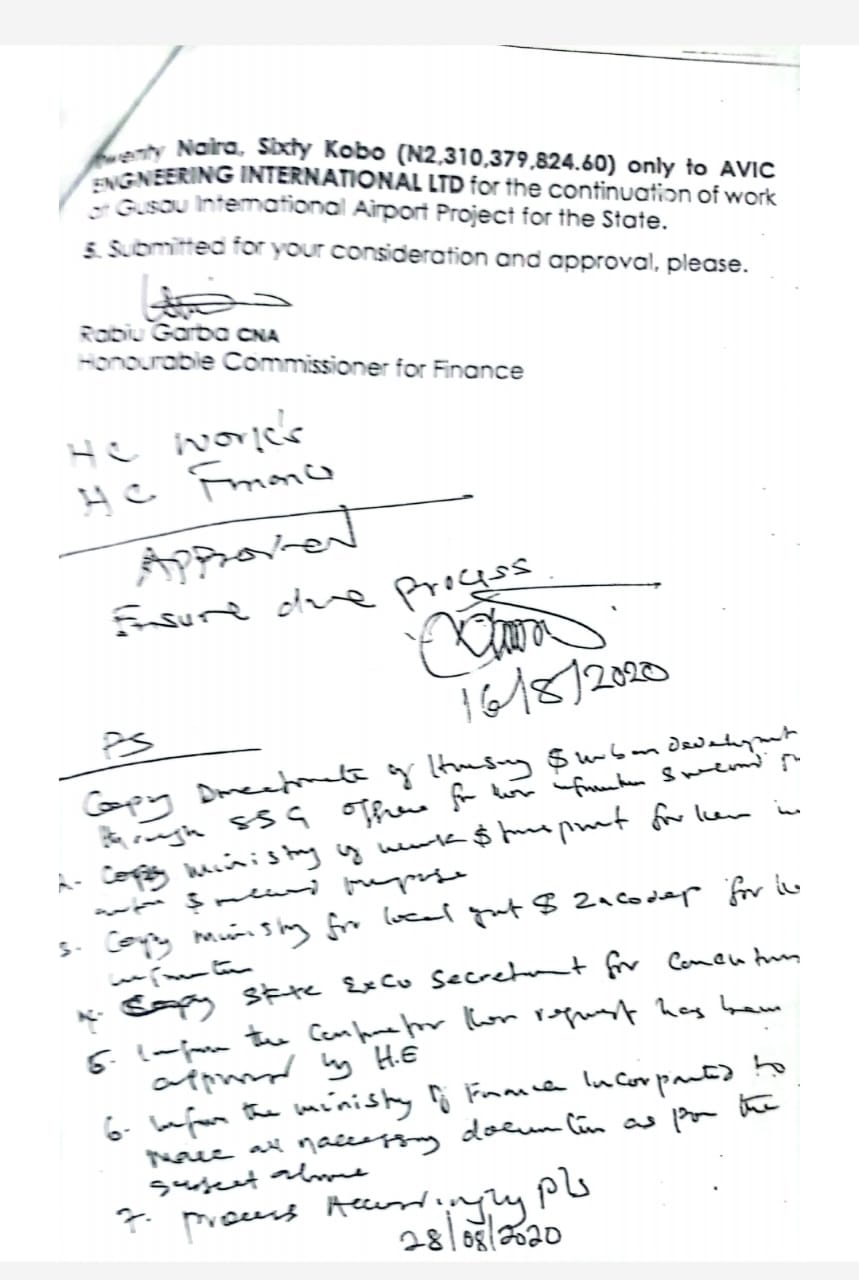 twenty Naira, Sixty Kobo (N2,310,379,824.60) only to AVIC
ENGNEERING INTERNATIONAL LTD for the continuation of work
at Gusau International Airport Project for the State.
5. Submitted for your consideration and approval, please.
Rabiu Garba CNA
Honourable Commissioner for Finance
HC Work's
HC Finance
Approved
Ensure due process
16/8/2020
PS
Copy Directorate of Housing $ urban Development
through SSG office for
2- Copy ministry of work $ transport for
$ record purpose
3. Copy ministry for local govt $ Zacodep for
information
4. Copy State ExCo Secretariat for
5. Inform the Contractor their request has been
approved by H.E
6. Inform the ministry of Finance Incorporated to
make all necessary as per the
subject above
7. process Accordingly pls
28/08/2020